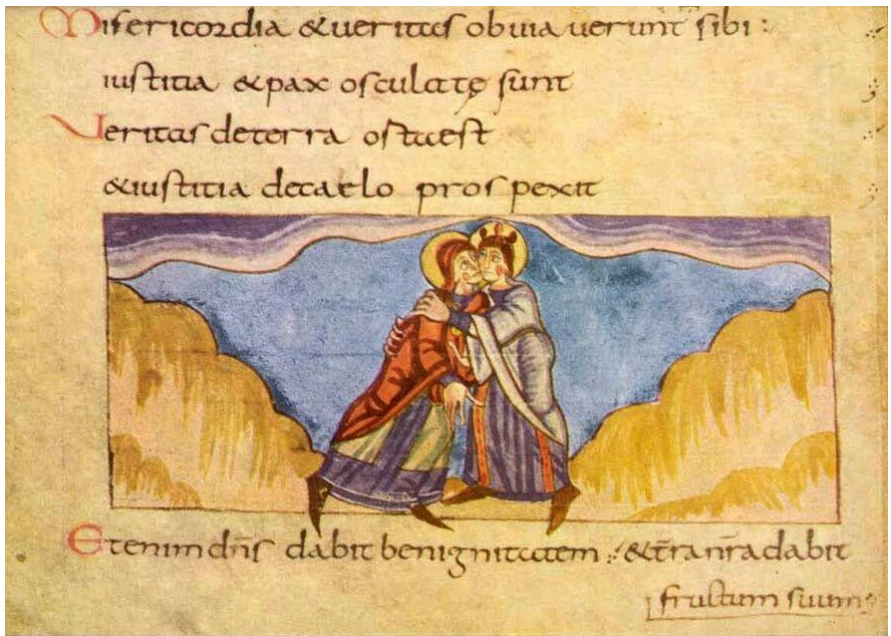 Misericordia & veritas obviaverunt sibi:
iustitia & pax osculatę sunt
Veritas de terra orta est
& iustitia de caelo prospexit
Etenim dn̄s dabit benignitatem: & t̄ra nr̄a dabit
fructum suum